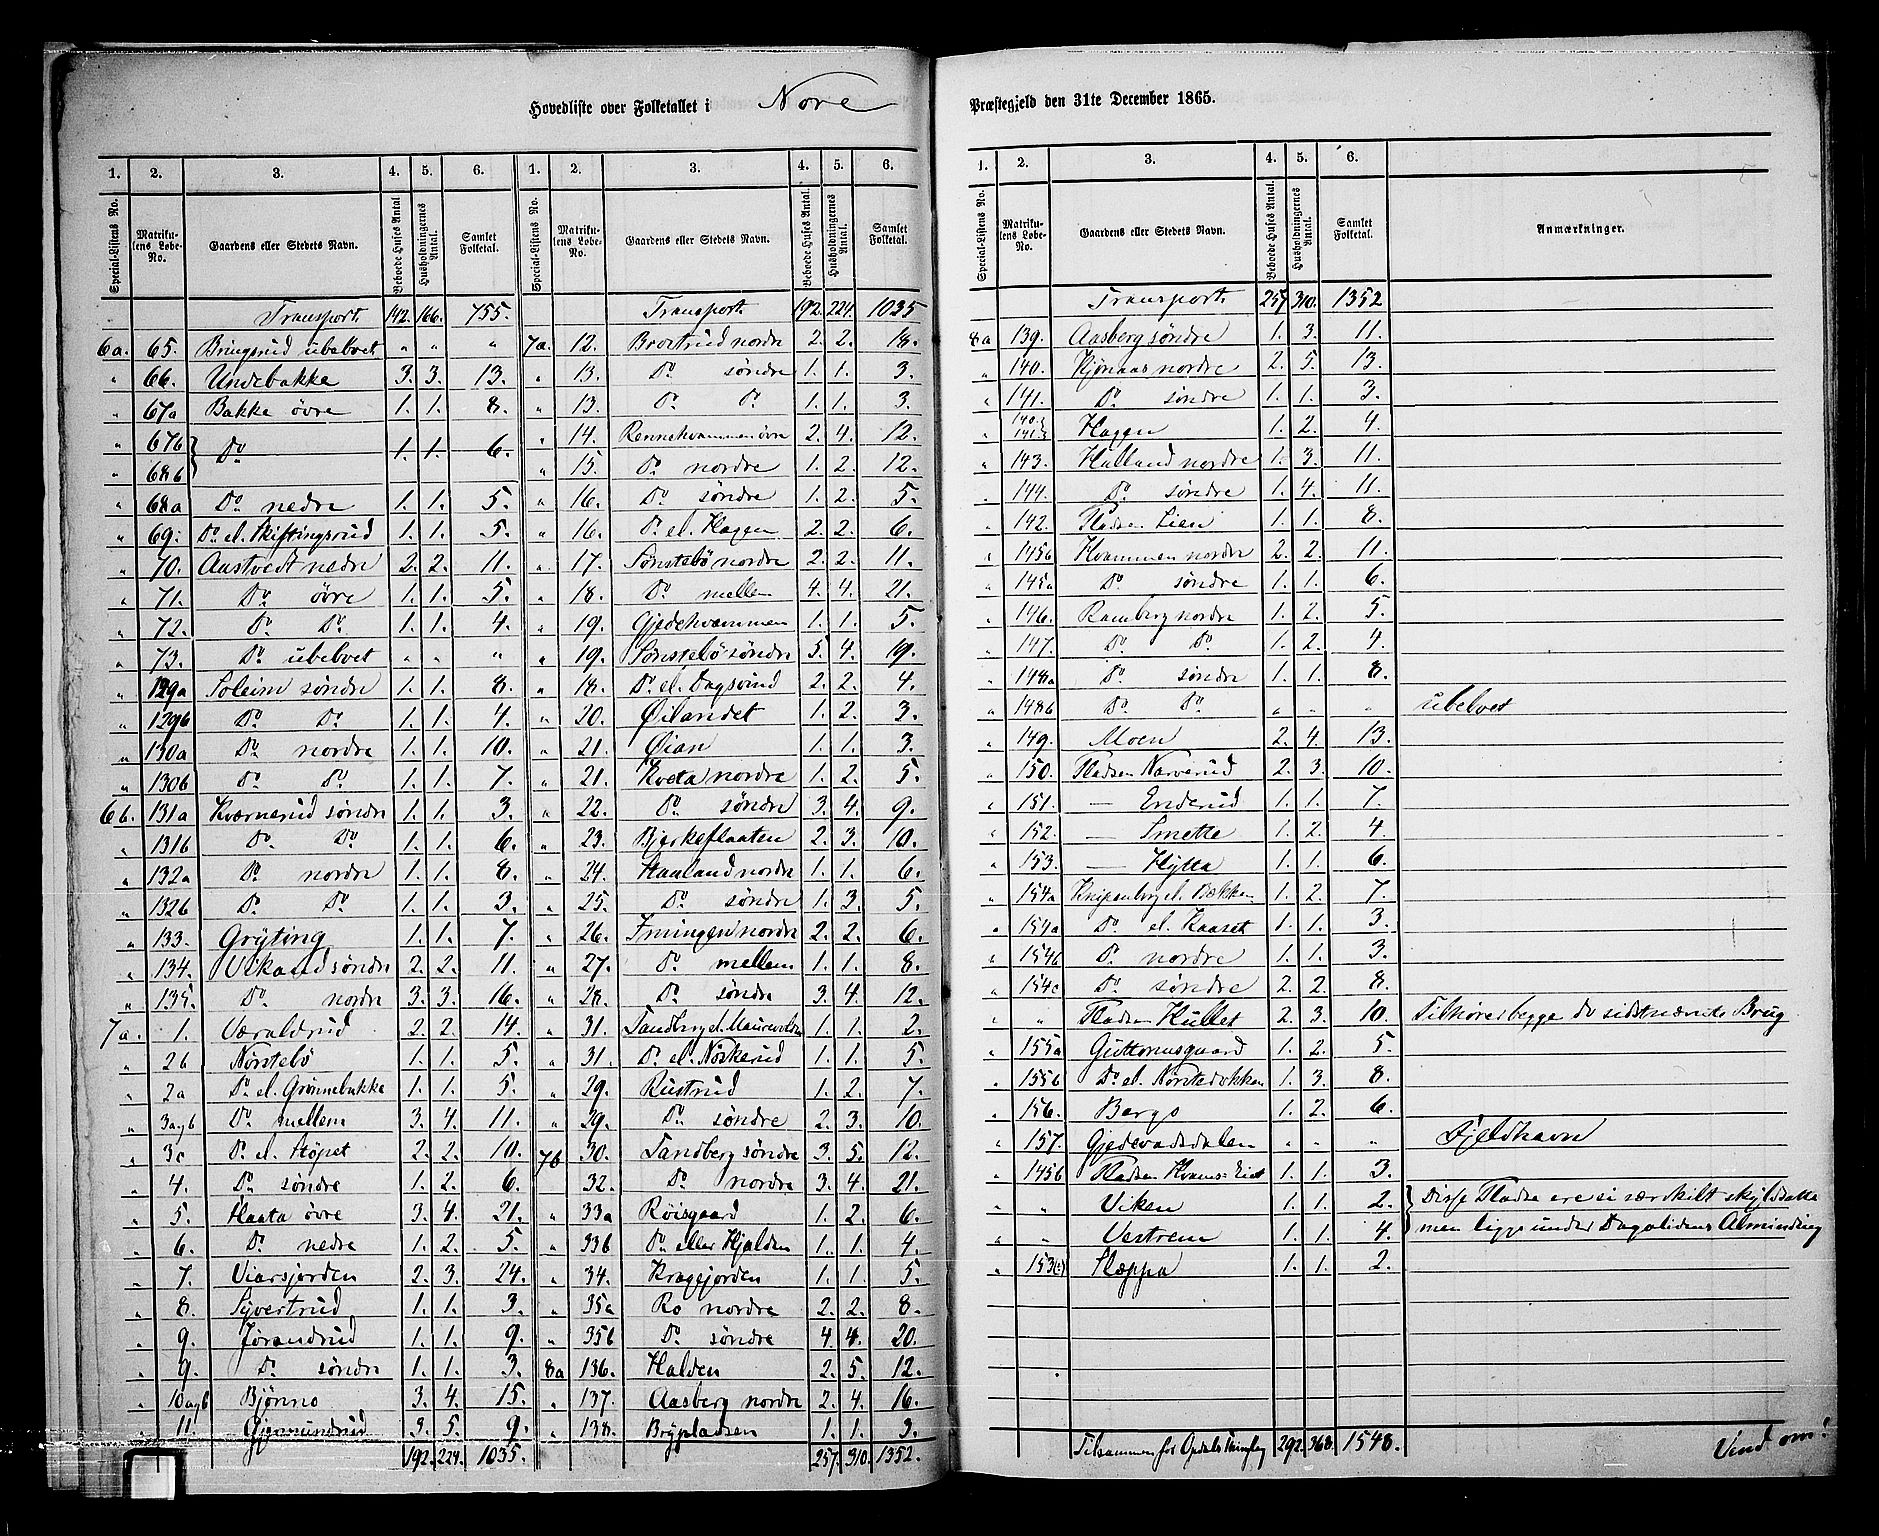 Hovedliste over Folketallet i Nore
1. 2. 3. 4. 5. 6. 1. 2. 3. 4. 5. 6.
Special-Listens No. Matrikulens Løbe-No. Gaardens eller Stedets Navn. Beboede Huses Antal. Husholdningernes Antal. Samlet Folketal. Special-Listens No. Matrikulens Løbe-No. Gaardens eller Stedets Navn. Beboede Huses Antal. Husholdningernes Antal. Samlet Folketal.
Transport. 142. 166. 755.
6a. 65. Bringsrud ubeboet " " "
" 66. Undebakke 3. 3. 13.
" 67a Bakke øvre 1. 1. 8.
" 67b } Do 1. 1. 6.
" 68b
" 68a Do nedre 1. 1. 5.
" 69. Do el. Skiftingsrud 1. 1. 5.
" 70. Aastvedt nedre 2. 2. 11.
" 71. Do øvre 1. 1. 5.
" 72. Do Do 1. 1. 4.
" 73. Do ubeboet " " "
" 129a Soleim søndre 1. 1. 8.
" 129b Do Do 1. 1. 4.
" 130a Do nordre 1. 1. 10.
" 130b Do Do 1. 1. 7.
6b. 131a Kværnerud søndre 1. 1. 3.
" 131b Do Do 1. 1. 6.
" 132a Do nordre 1. 1. 8.
" 132b Do Do 1. 1. 3.
" 133. Gryting 1. 1. 7.
" 134. Vikand søndre 2. 2. 11.
" 135. Do nordre 3. 3. 16.
7a. 1. Væraldrud 2. 2. 14.
" 2b Nørstebö 1. 1. 5.
" 2a Do el. Grønnebakke 1. 1. 5.
" 3a og b Do mellem 3. 4. 11.
" 3c Do el. Støpet 2. 2. 10.
" 4. Do søndre 1. 2. 6.
" 5. Flaata øvre 3. 4. 21.
" 6. Do nedre 1. 2. 5.
" 7. Viarsjorden 2. 3. 24.
" 8. Syvertrud 1. 1. 3.
" 9. Jørandrud 1. 1. 9.
" 9. Do søndre 1. 1. 3.
" 10a og b Bjønno 3. 4. 15.
" 11. Gjermundrud 3. 5. 9.
192. 224. 1035.
Transport. 192. 224. 1035
7a. 12. Brostrud nordre 2. 2. 18.
" 13. Do søndre 1. 1. 3.
" 13. Do Do 1. 1. 3.
" 14. Rennehvammen øvre 2. 4. 12.
" 15. Do nordre 1. 2. 12.
" 16. Do søndre 1. 2. 5.
" 16. Do el. Haggen 2. 2. 6.
" 17. Sønstebö nordre 2. 2. 11.
" 18. Do mellem 4. 4. 21.
" 19. Gjedehvammen 1. 1. 5.
" 19. Sønstebö søndre 5. 4. 19.
" 18. Do el. Dagsrud 2. 2. 4.
" 20. Øilandet 1. 2. 3.
" 21. Øian 1. 1. 3.
" 21. Kveta nordre 1. 2. 5.
" 22. Do søndre 3. 4. 9.
" 23. Bjerkeflaaten 2. 3. 10.
" 24. Haaland nordre 1. 1. 6.
" 25. Do søndre 1. 3. 5.
" 26. Imingen nordre 2. 2. 6.
" 27. Do mellem 1. 1. 8.
" 28. Do søndre 3. 4. 12.
" 31. Sandberg el. 1. 1. 2.
" 31. Do el. Nöskerud 1. 1. 5.
" 29. Rustrud 1. 2. 7.
" 29. Do søndre 2. 3. 10.
7b 30. Sandberg søndre 3. 5. 12.
" 32. Do nordre 3. 4. 21.
" 33a Röisgaard 1. 2. 6.
" 33b Do eller Hjalden 1. 1. 4.
" 34. Kragejorden 1. 1. 5.
" 35a Ro nordre 2. 2. 8.
" 35b Do søndre 4. 4. 20.
8a 136. Halden 2. 5. 12.
" 137. Aasberg nordre 2. 4. 16.
" 138. Brypladsen 1. 1. 3.
257. 310. 1352.
Præstegjeld den 31te December 1865.
1. 2. 3. 4. 5. 6.
Special-Listens No. Matrikulens Løbe-No. Gaardens eller Stedets Navn. Beboede Huses Antal. Husholdningernes Antal. Samlet Folketal. Anmærkninger.
Transport. 257. 310. 1352
8a 139. Aasberg søndre 1. 3. 11.
" 140. Kjønaas nordre 2. 5. 13.
" 141. Do søndre 1. 1. 3.
" 140. 141. } Haggen 1. 2. 4.
" 143. Halland nordre 1. 3. 11.
" 144. Do søndre 1. 4. 11.
" 142. Pladsen Lien 1. 1. 8.
" 145b Hvammen nordre 2. 2. 11.
" 145a Do søndre 1. 1. 6.
" 146. Ramberg nordre 1. 2. 5.
" 147. Do Do 1. 2. 4.
" 148a Do søndre 1. 1. 8.
" 148b Do Do " " " ubeboet
" 149. Moen 2. 4. 13.
" 150. Pladsen Narverud 2. 3. 10.
" 151. — Enderud 1. 1. 7.
" 152. — Smette 1. 2. 4.
" 153. — Hytta 1. 1. 6.
" 154a Knipenberg el. Bækken 1. 2. 7.
" 154a Do el. Raaset 1. 1. 3.
" 154b Do nordre 1. 1. 3.
" 154c Do søndre 2. 2. 8.
" " Pladsen Hullet 2. 3. 10. Tilhører begge de sidstnævnte Brug
" 155a Guttormsgaard 1. 2. 5.
" 155b Do el. Nørstedokken 1. 3. 8.
" 156. Bergo 1. 2. 6.
" 157. Gjedevadsdalen " " " Fjeldhavn
" 145b Pladsen Hvams-Eiet 1. 1. 3.
" " Viken 1. 1. 2. } Disse Pladse ere ei særskilt skyldsatte
" " Vestrem 1. 1. 4. men ligge under Dagalidens Almindning
" 153(c) Skøppa 1. 1. 2.
Tilsammen for Opdals Thinglag 292. 368. 1548.
Vend om!